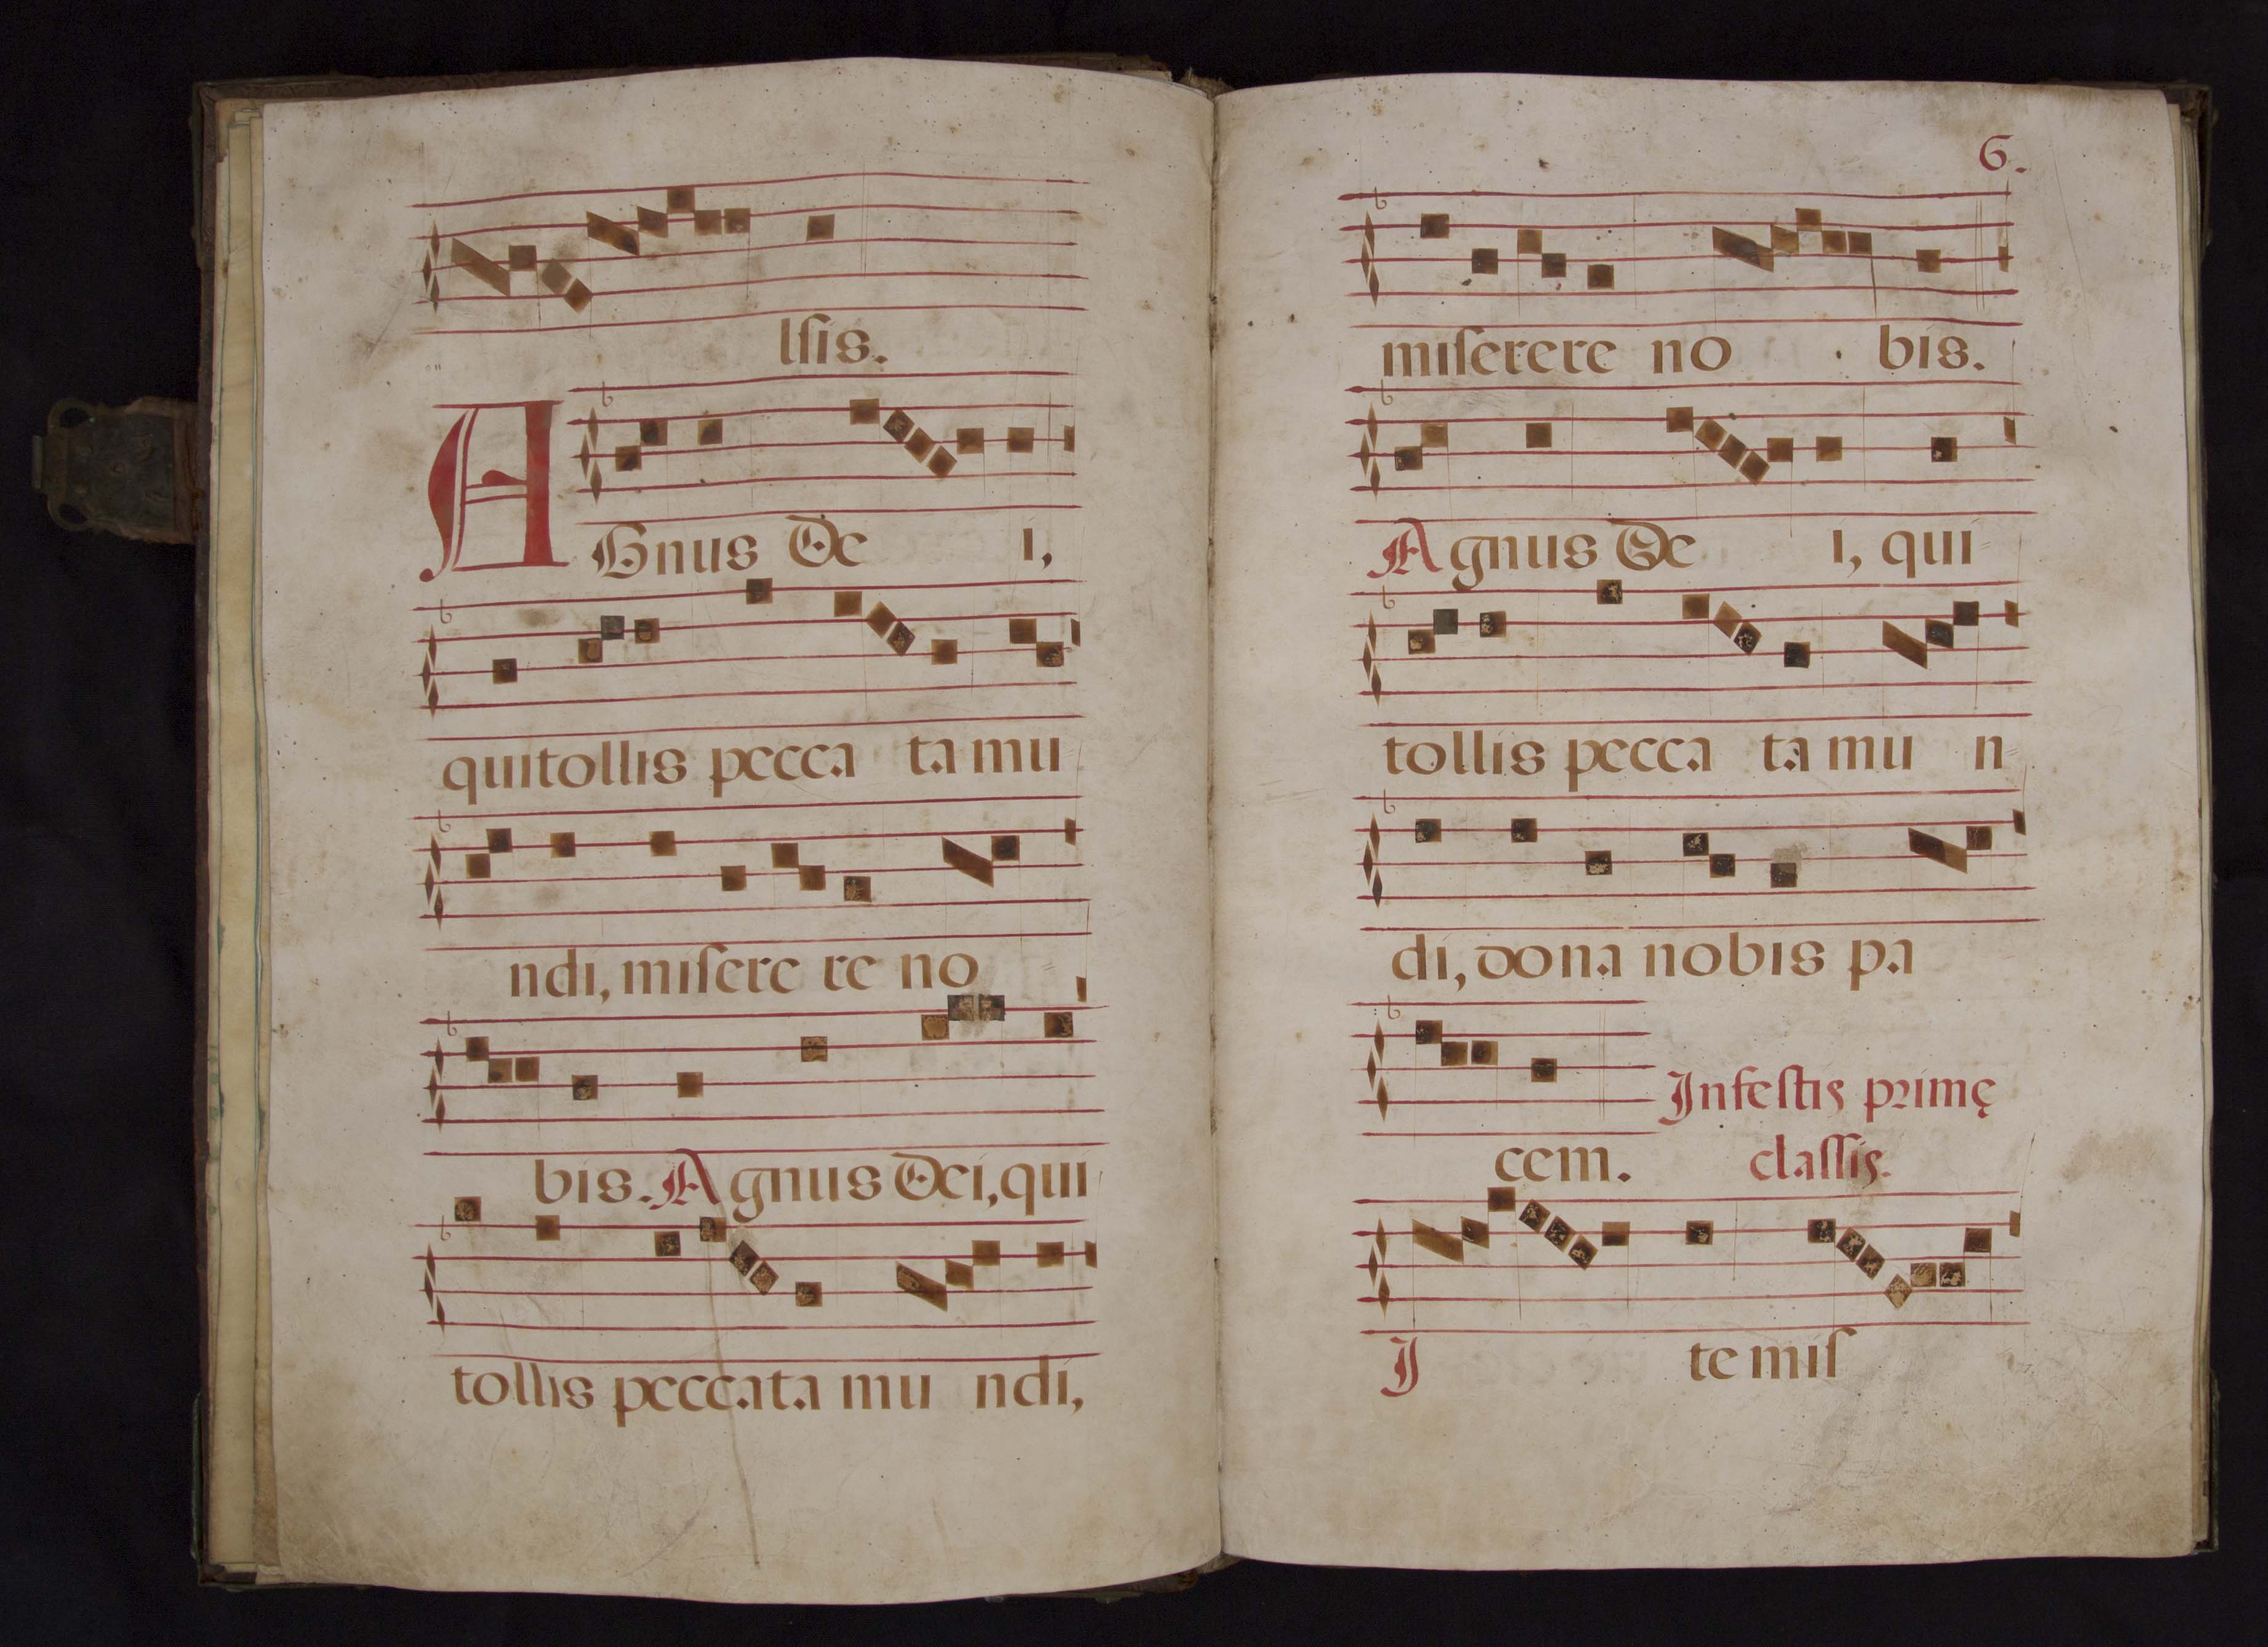 lſis.
AGnus De i,
qui tollis pecca ta mu
ndi, miſere re no
bis. Agnus Dei, qui
tollis peccata mu ndi,
6.
miſerere no bis.
Agnus De i, qui
tollis pecca ta mu n
di, dona nobis pa
cem. In feſtis primę
claſſis.
I te miſ